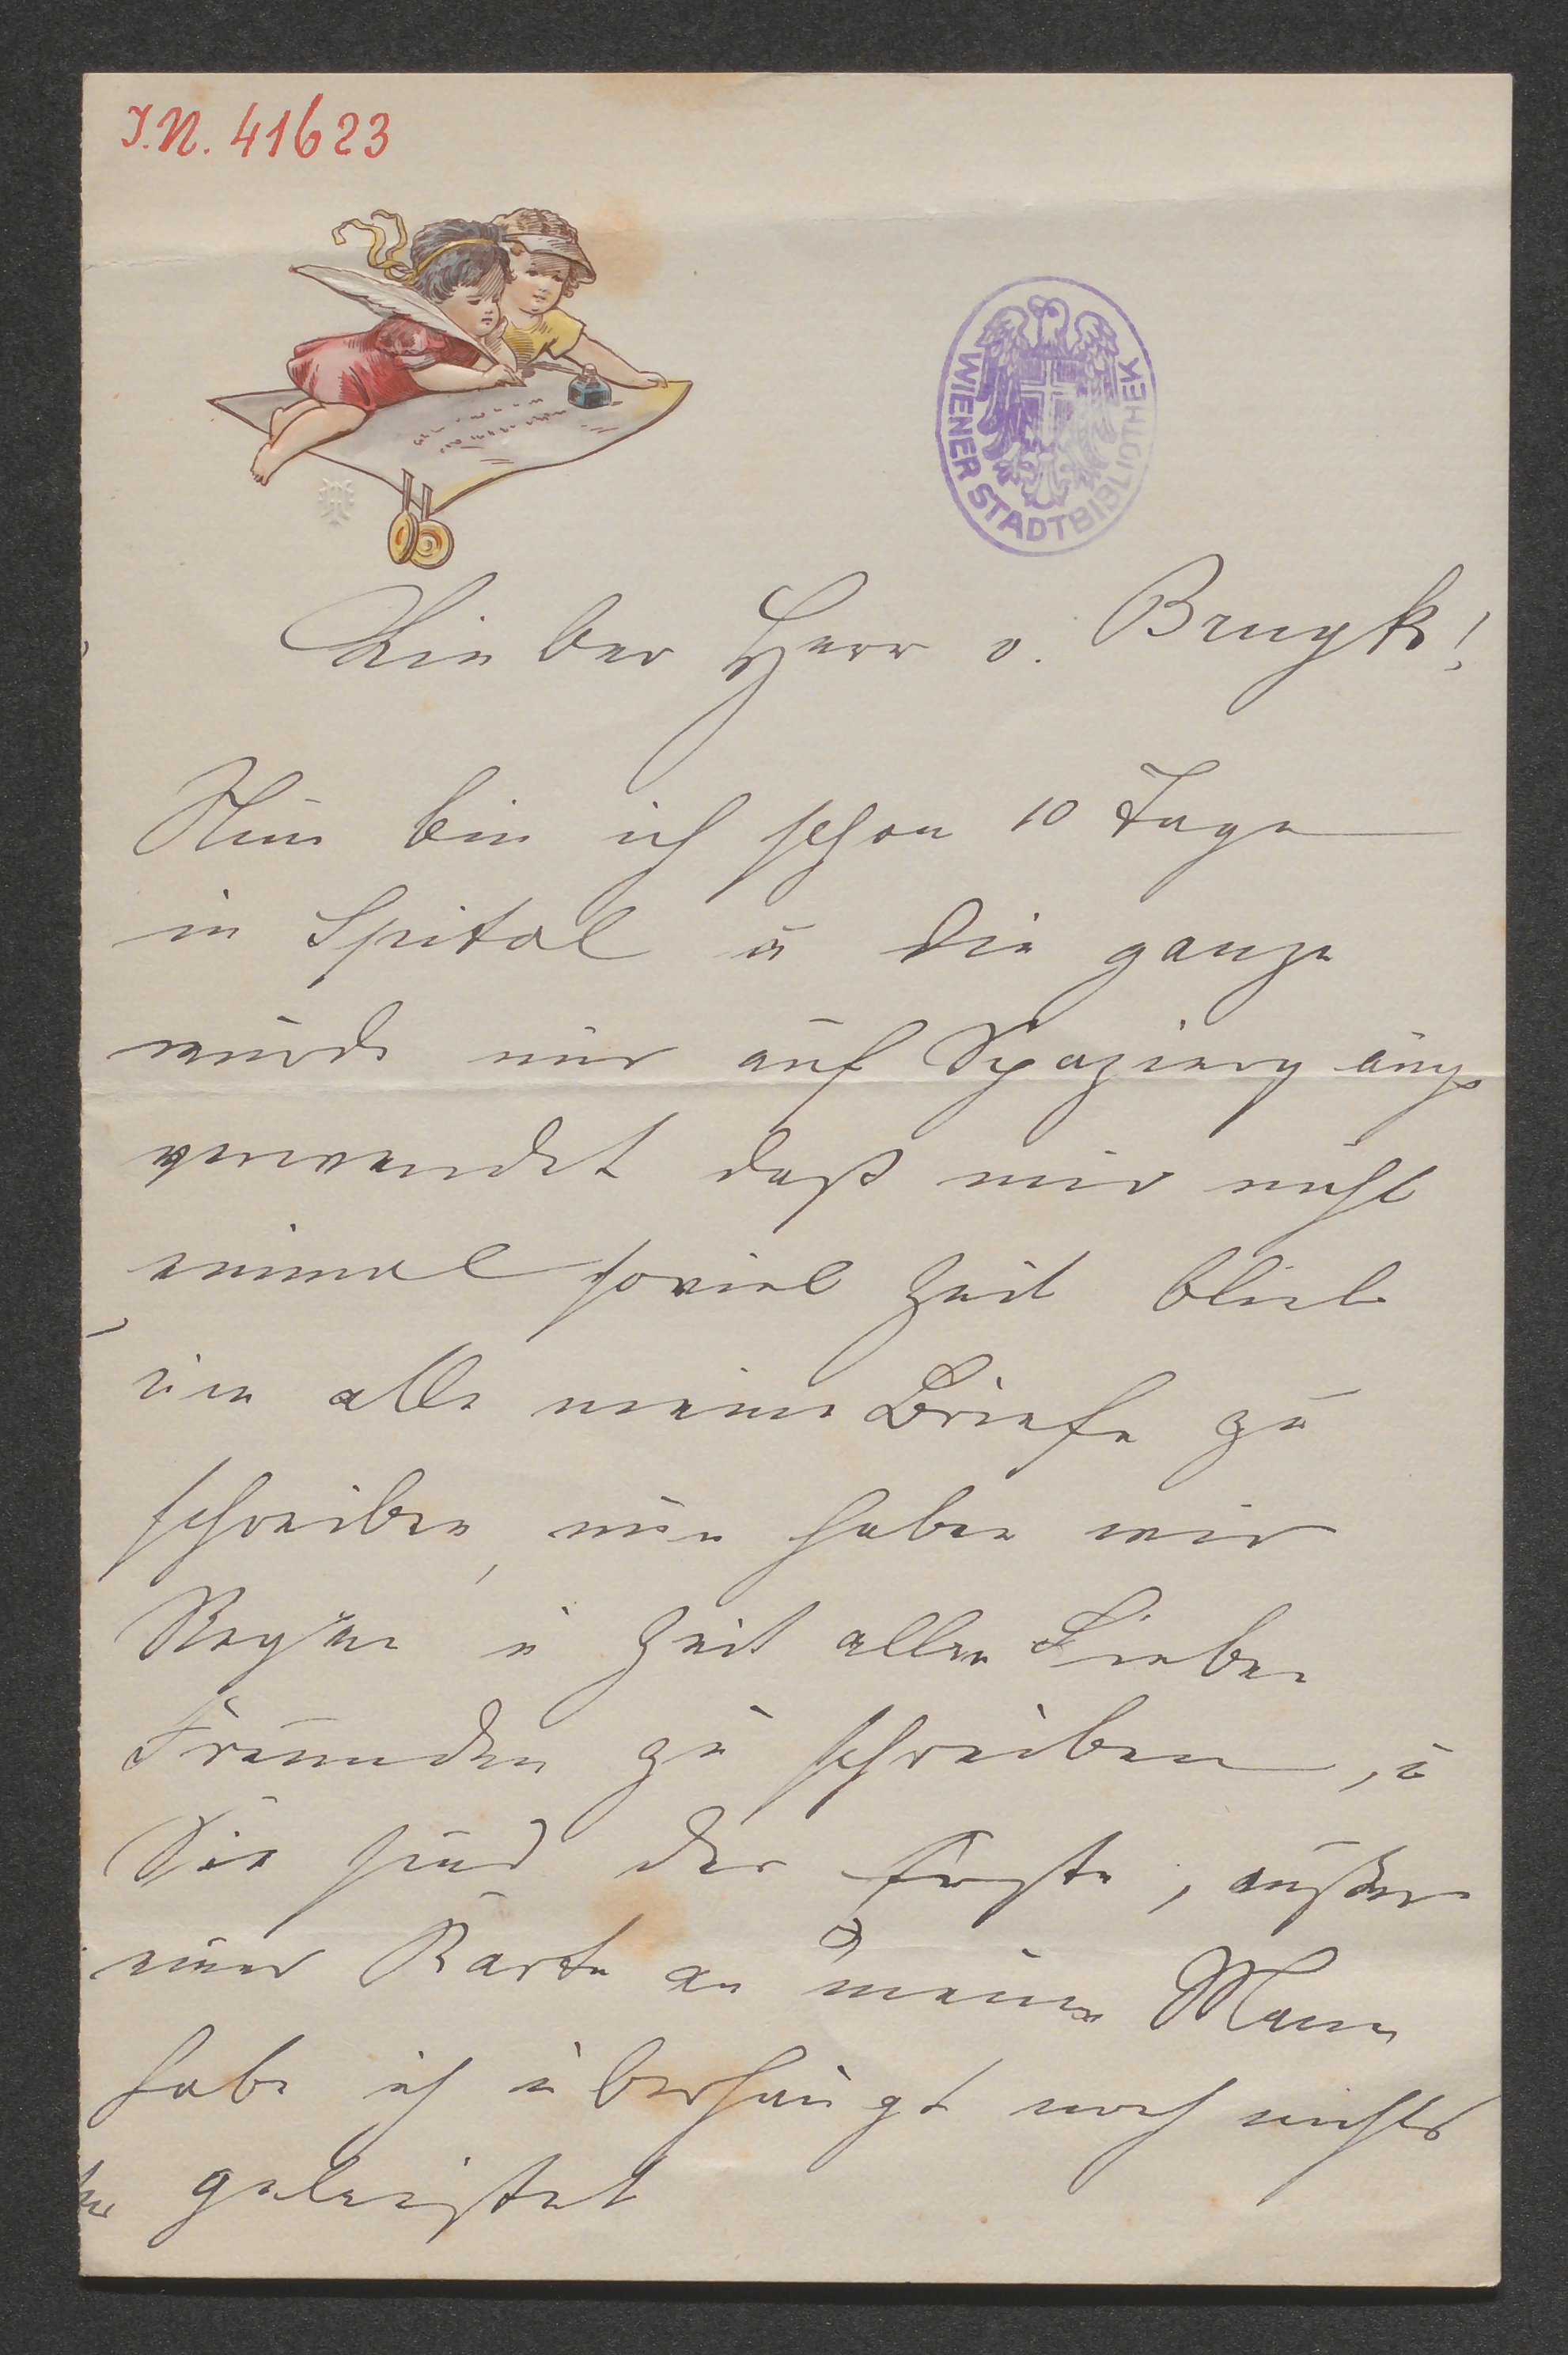 I.N. 41623
WIENER STADTBIBLIOTHEK
Lieber Herr v. Bruyk!
Nun bin ich schon 10 Tage
in Spital u die ganze
wurde nur auf Spaziergänge
verwendet daß mir nicht
einmal soviel Zeit blieb
um alle meine Briefe zu
schreiben, nun haben wir
Regen u Zeit allen Lieben
Freunden zu schreiben, u
Sie sind der Erste, außer
einer Karte an meinen Mann
habe ich überhaupt noch nichts
geleistet